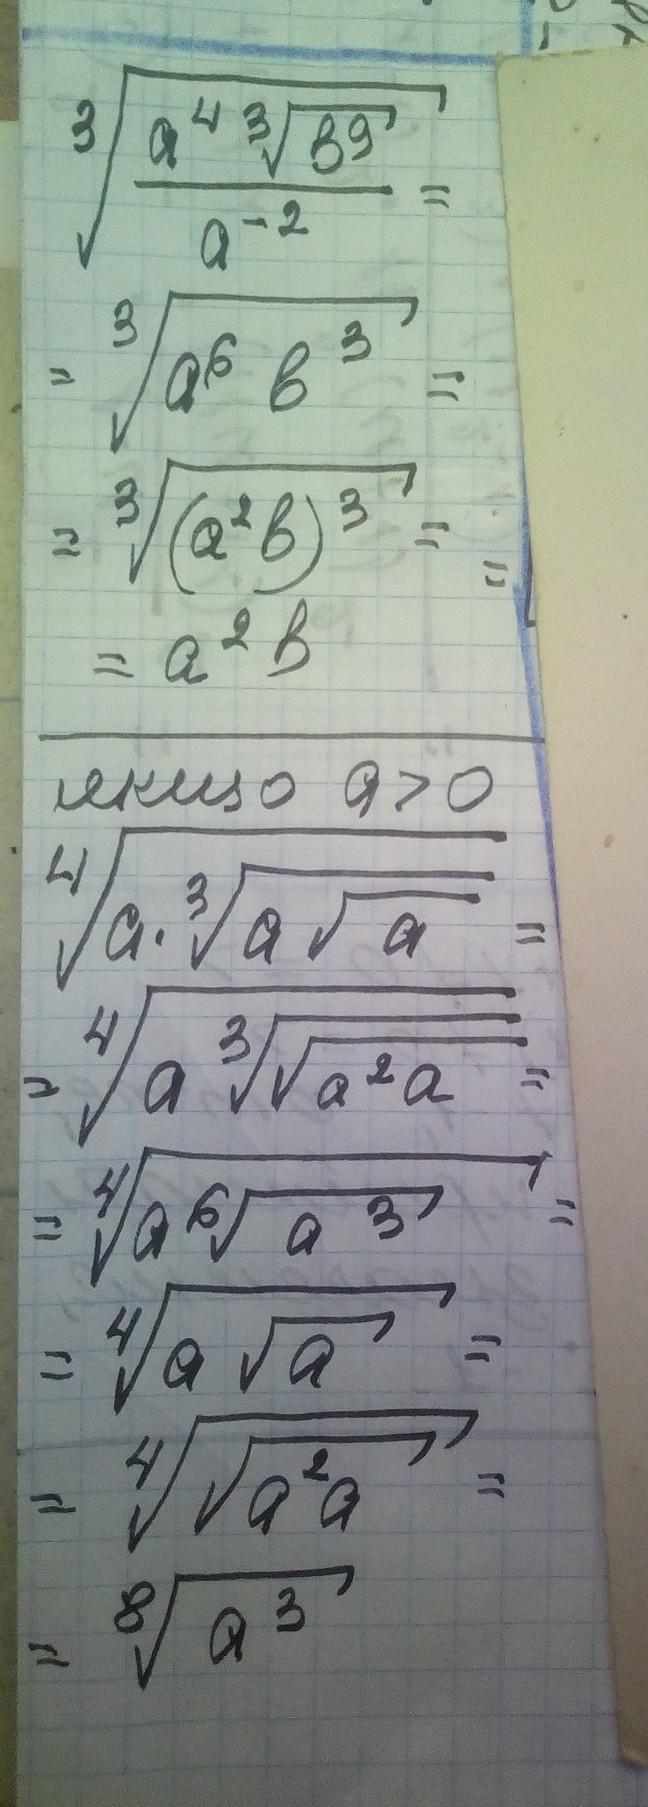 ∛(a⁴ ∛(b⁹) / a⁻²) =
= ∛(a⁶ b³) =
= ∛((a²b)³) = =
= a²b
якщо a > 0
⁴√(a · ∛(a √a)) =
= ⁴√(a ∛(√(a²a))) =
= ⁴√(a ⁶√(a³)) =
= ⁴√(a √a) =
= ⁴√(√(a²a)) =
= ⁸√(a³)